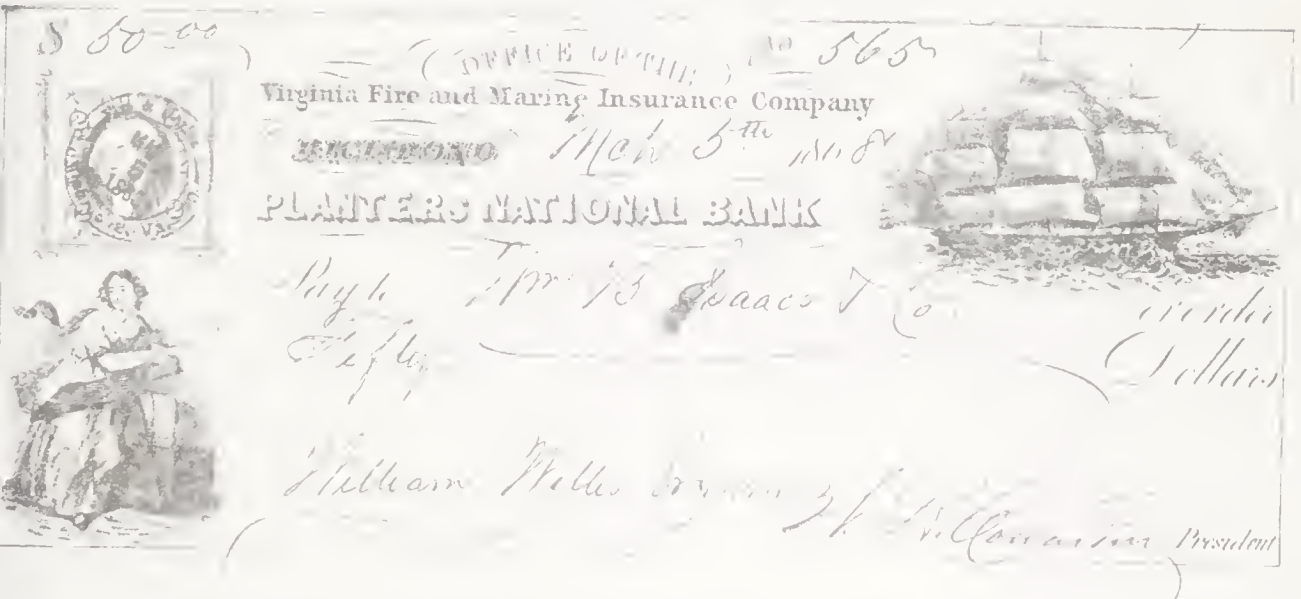 $ 50 00
No 565
OFFICE OF THE
Virginia Fire and Marine Insurance Company
RICHMOND Mch 5th 1868
PLANTERS NATIONAL BANK
Pay to Wm B Isaacs & Co or order
Fifty Dollars
William Willis
President